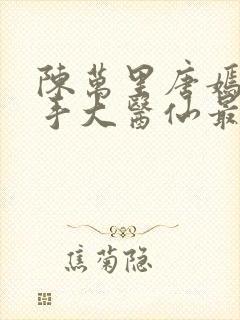 陳萬里唐嫣
手大醫仙最
焦菊隐